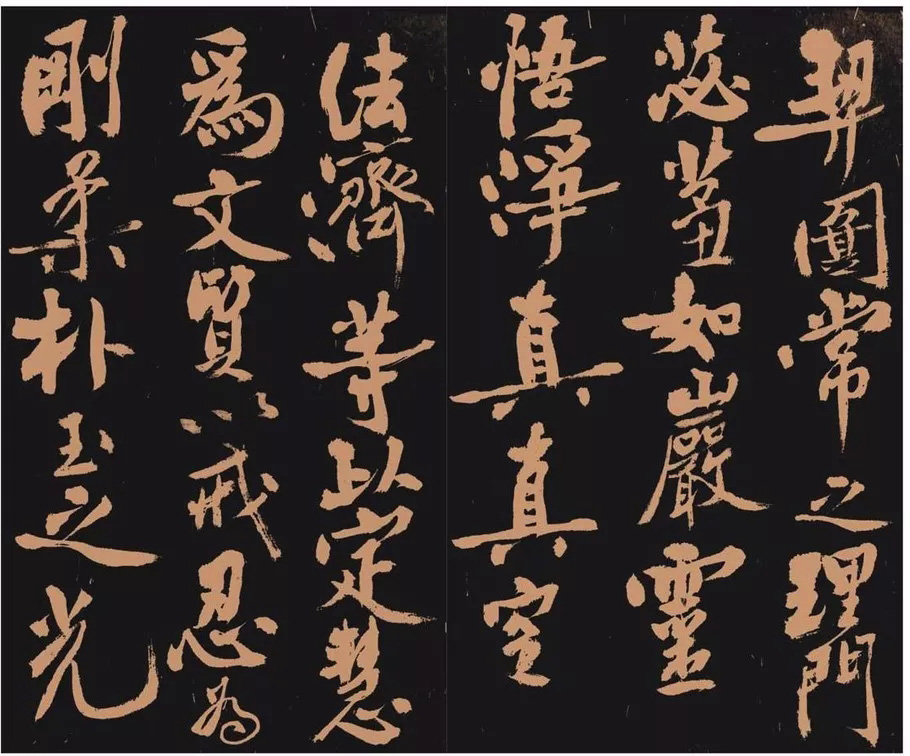 契圓常之理門
苾蒭如巖靈
悟淨真真空
法濟等以定慧
為文質以戒忍為
剛柔朴玉之光